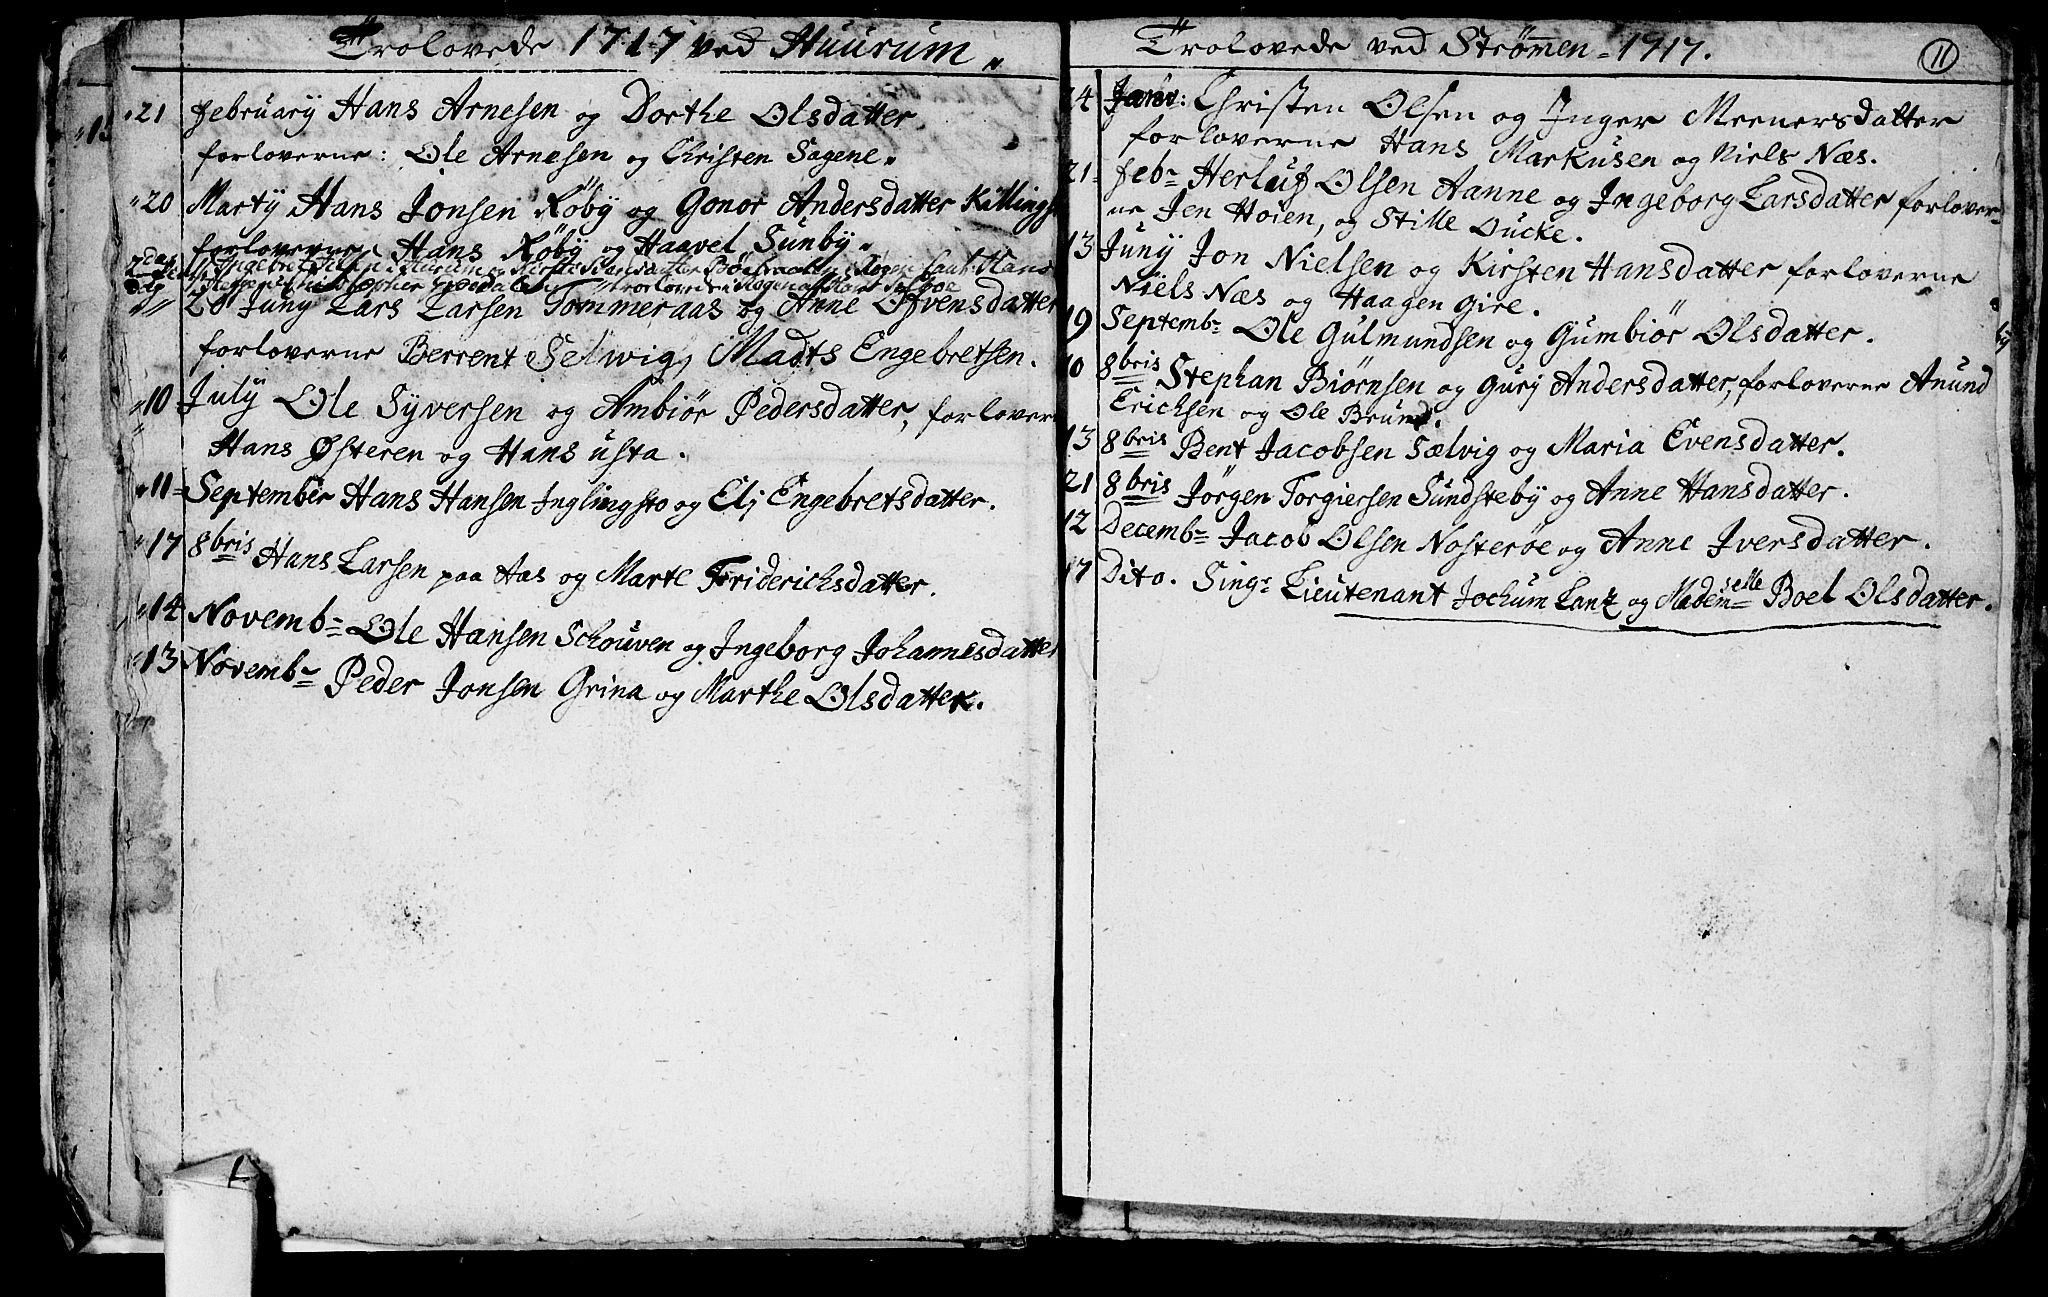 Trolovede 1717 ved Huurum
21 februarÿ Hans Arnesen og Dorthe Olsdatter
forloverne: Ole Arnesen og Christen Sagene.
20 Martÿ Hans Jonsen Røbÿ og Gonor Andersdatter Killings
forloverne Hans Røbÿ og Haavel Sunbÿ.
Ingebret i Hurum Hans
20 Junÿ Lars Larsen Tommeraas og Anne Øfvensdatter
forloverne Berrent Selwig, Madts Engebretsen.
10 Julÿ Ole Syversen og Ambiør Pedersdatter, forlover
Hans Østeren og Hans Usta.
11 September Hans Hansen Inglingsto og Eli Engebretsdatter.
17 8bris Hans Larsen paa Aas og Marte Friderichsdatter.
14 Novemb= Ole Hansen Schouven og Ingeborg Johannesdatter
13 Novemb= Peder Jonsen Grina og Marthe Olsdatter.
Trolovede ved Strømen = 1717.
11
24 Janv: Christen Olsen og Inger Meenersdatter
forloverne Hans Markusen og Niels Næs.
21 feb= Herluf Olsen Aanne og Ingeborg Larsdatter forlover=
ne Jen Hoien, og Stille Ducke.
13 Junÿ Jon Nielsen og Kirsten Hansdatter forloverne
Niels Næs og Haagen Gire.
19 Septemb= Ole Gulmundsen og Gumbiør Olsdatter.
10 8bris Stephan Biørnsen og Gurj Andersdatter, forloverne Anund
Erichsen og Ole Brund.
13 8bris Bent Jacobsen Sælvig og Maria Evensdatter.
21 8bris Jørgen Torgiersen Sundstebÿ og Anne Hansdatter.
12 Decemb= Jacob Olsen Nosterøe og Anne Iversdatter.
17 Dito. Sing= Lieutenant Jochum Lanz og Madem=selle Boel Olsdatter.